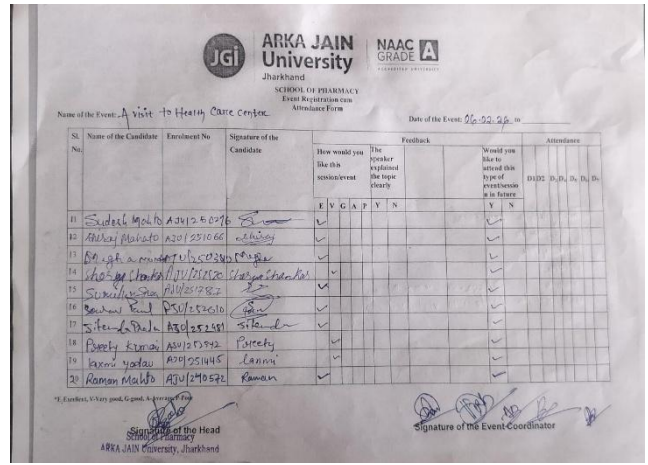 JGi ARKA JAIN University Jharkhand
NAAC GRADE A
ACCREDITED UNIVERSITY
SCHOOL OF PHARMACY
Event Registration cum
Attendance Form
Name of the Event: A visit to Health Care center
Date of the Event: 06-02-26 to
Sl. No. Name of the Candidate Enrolment No Signature of the Candidate Feedback Attendance
How would you like this session/event
The speaker explained the topic clearly
Would you like to attend this type of event/session in future
E V G A P Y N Y N
11 Sudesh Mahto AJU/250276
12 Mahato AJU/251066
13
14 Shankar
15
16 Paul
17 AJU/252481 Jitendra
18 Preety Kumari Preety
19 Laxmi yadav AJU/251445 Laxmi
20 Raman Mahto AJU/240572 Raman
*E-Excellent, V-Very good, G-good, A-Average, P-Poor
Signature of the Head
School of Pharmacy
ARKA JAIN University, Jharkhand
Signature of the Event Coordinator